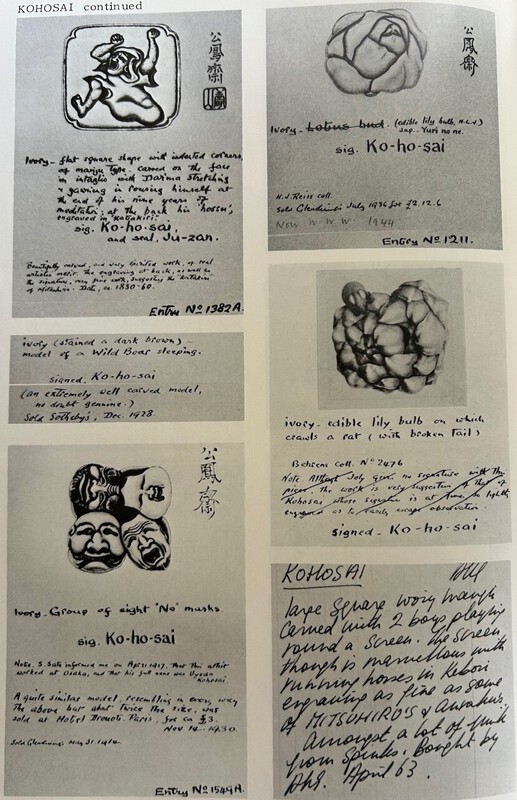 KOHOSAI continued
公鳳齋
Ivory - flat square shape with indented corners,
of manju type. Carved on the face
in intaglio with Daruma stretching
& yawning in rousing himself at
the end of his nine years of
meditation; at the back his 'hossu',
engraved in 'Katakiri'.
sig. Ko-ho-sai,
and seal, Ju-zan.
Beautifully carved, and very spirited work, of real
artistic merit. The engraving at back, as well as
the signature, very fine work, suggesting the
of Mitsuhiro. Date, ca. 1830-60.
Entry No 1382A.
ivory (stained a dark brown) -
model of a Wild Boar sleeping.
signed. Ko-ho-sai
(an extremely well carved model,
no doubt genuine.)
Sold Sotheby's, Dec. 1928.
公鳳齋
Ivory - Group of eight 'No' masks
sig. Ko-ho-sai
Note. S. Sato informed me on Apl 1917, that this artist
worked at Osaka, and that his full name was Uyeda
Kohosai.
A quite similar model, resembling in every way
the above but abt twice the size, was
sold at Hotel Drouot, Paris, for ca £3.
Nov 14 - 1930.
Sold Glendining: May 31
Entry No 1549A.
公鳳齋
Ivory - Lotus bud. (edible lily bulb, H.L.J.)
Jap. Yuri no ne.
sig. Ko-ho-sai
H.J. Reiss coll.
Sold Glendining July 1936 for £2.12.6
Now W.W.W. 1944
Entry No 1211.
ivory - edible lily bulb on which
crawls a rat (with broken tail)
Behrens coll. No 2476
Note. Altho' Joly gives no signature with this
piece, the work is very suggestive of that of
Kohosai, whose signature is at times so lightly
engraved as to easily escape observation.
signed - Ko-ho-sai
KOHOSAI
large Square ivory manju
Carved with 2 boys playing
round a Screen. The Screen
though is marvellous with
running horses in Kebori
engraving as fine as some
of MITSUHIRO'S &
Amongst a lot of junk
from Spinks. Bought by
April 63.